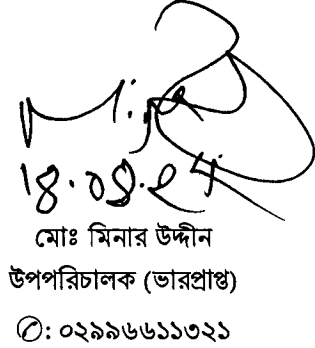 মোঃ মিনার উদ্দীন
উপপরিচালক (ভারপ্রাপ্ত)
✆: ০২৯৯৬৬১১৩২১